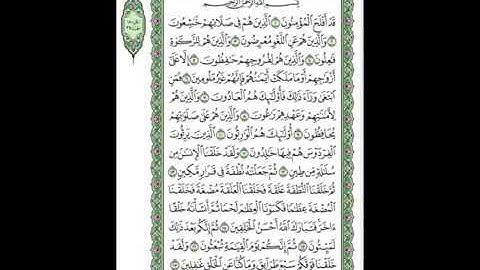 بِسْمِ ٱللَّهِ ٱلرَّحْمَٰنِ ٱلرَّحِيمِ
قَدْ أَفْلَحَ ٱلْمُؤْمِنُونَ ١ ٱلَّذِينَ هُمْ فِى صَلَاتِهِمْ خَٰشِعُونَ
٢ وَٱلَّذِينَ هُمْ عَنِ ٱللَّغْوِ مُعْرِضُونَ ٣ وَٱلَّذِينَ هُمْ لِلزَّكَوٰةِ
فَٰعِلُونَ ٤ وَٱلَّذِينَ هُمْ لِفُرُوجِهِمْ حَٰفِظُونَ ٥ إِلَّا عَلَىٰٓ
أَزْوَٰجِهِمْ أَوْ مَا مَلَكَتْ أَيْمَٰنُهُمْ فَإِنَّهُمْ غَيْرُ مَلُومِينَ ٦ فَمَنِ
ٱبْتَغَىٰ وَرَآءَ ذَٰلِكَ فَأُو۟لَٰٓئِكَ هُمُ ٱلْعَادُونَ ٧ وَٱلَّذِينَ هُمْ
لِأَمَٰنَٰتِهِمْ وَعَهْدِهِمْ رَٰعُونَ ٨ وَٱلَّذِينَ هُمْ عَلَىٰ صَلَوَٰتِهِمْ
يُحَافِظُونَ ٩ أُو۟لَٰٓئِكَ هُمُ ٱلْوَٰرِثُونَ ١٠ ٱلَّذِينَ يَرِثُونَ
ٱلْفِرْدَوْسَ هُمْ فِيهَا خَٰلِدُونَ ١١ وَلَقَدْ خَلَقْنَا ٱلْإِنسَٰنَ مِن
سُلَٰلَةٍ مِّن طِينٍ ١٢ ثُمَّ جَعَلْنَٰهُ نُطْفَةً فِى قَرَارٍ مَّكِينٍ ١٣
ثُمَّ خَلَقْنَا ٱلنُّطْفَةَ عَلَقَةً فَخَلَقْنَا ٱلْعَلَقَةَ مُضْغَةً فَخَلَقْنَا
ٱلْمُضْغَةَ عِظَٰمًا فَكَسَوْنَا ٱلْعِظَٰمَ لَحْمًا ثُمَّ أَنشَأْنَٰهُ خَلْقًا
ءَاخَرَ فَتَبَارَكَ ٱللَّهُ أَحْسَنُ ٱلْخَٰلِقِينَ ١٤ ثُمَّ إِنَّكُم بَعْدَ ذَٰلِكَ
لَمَيِّتُونَ ١٥ ثُمَّ إِنَّكُمْ يَوْمَ ٱلْقِيَٰمَةِ تُبْعَثُونَ ١٦ وَلَقَدْ
خَلَقْنَا فَوْقَكُمْ سَبْعَ طَرَآئِقَ وَمَا كُنَّا عَنِ ٱلْخَلْقِ غَٰفِلِينَ ١٧